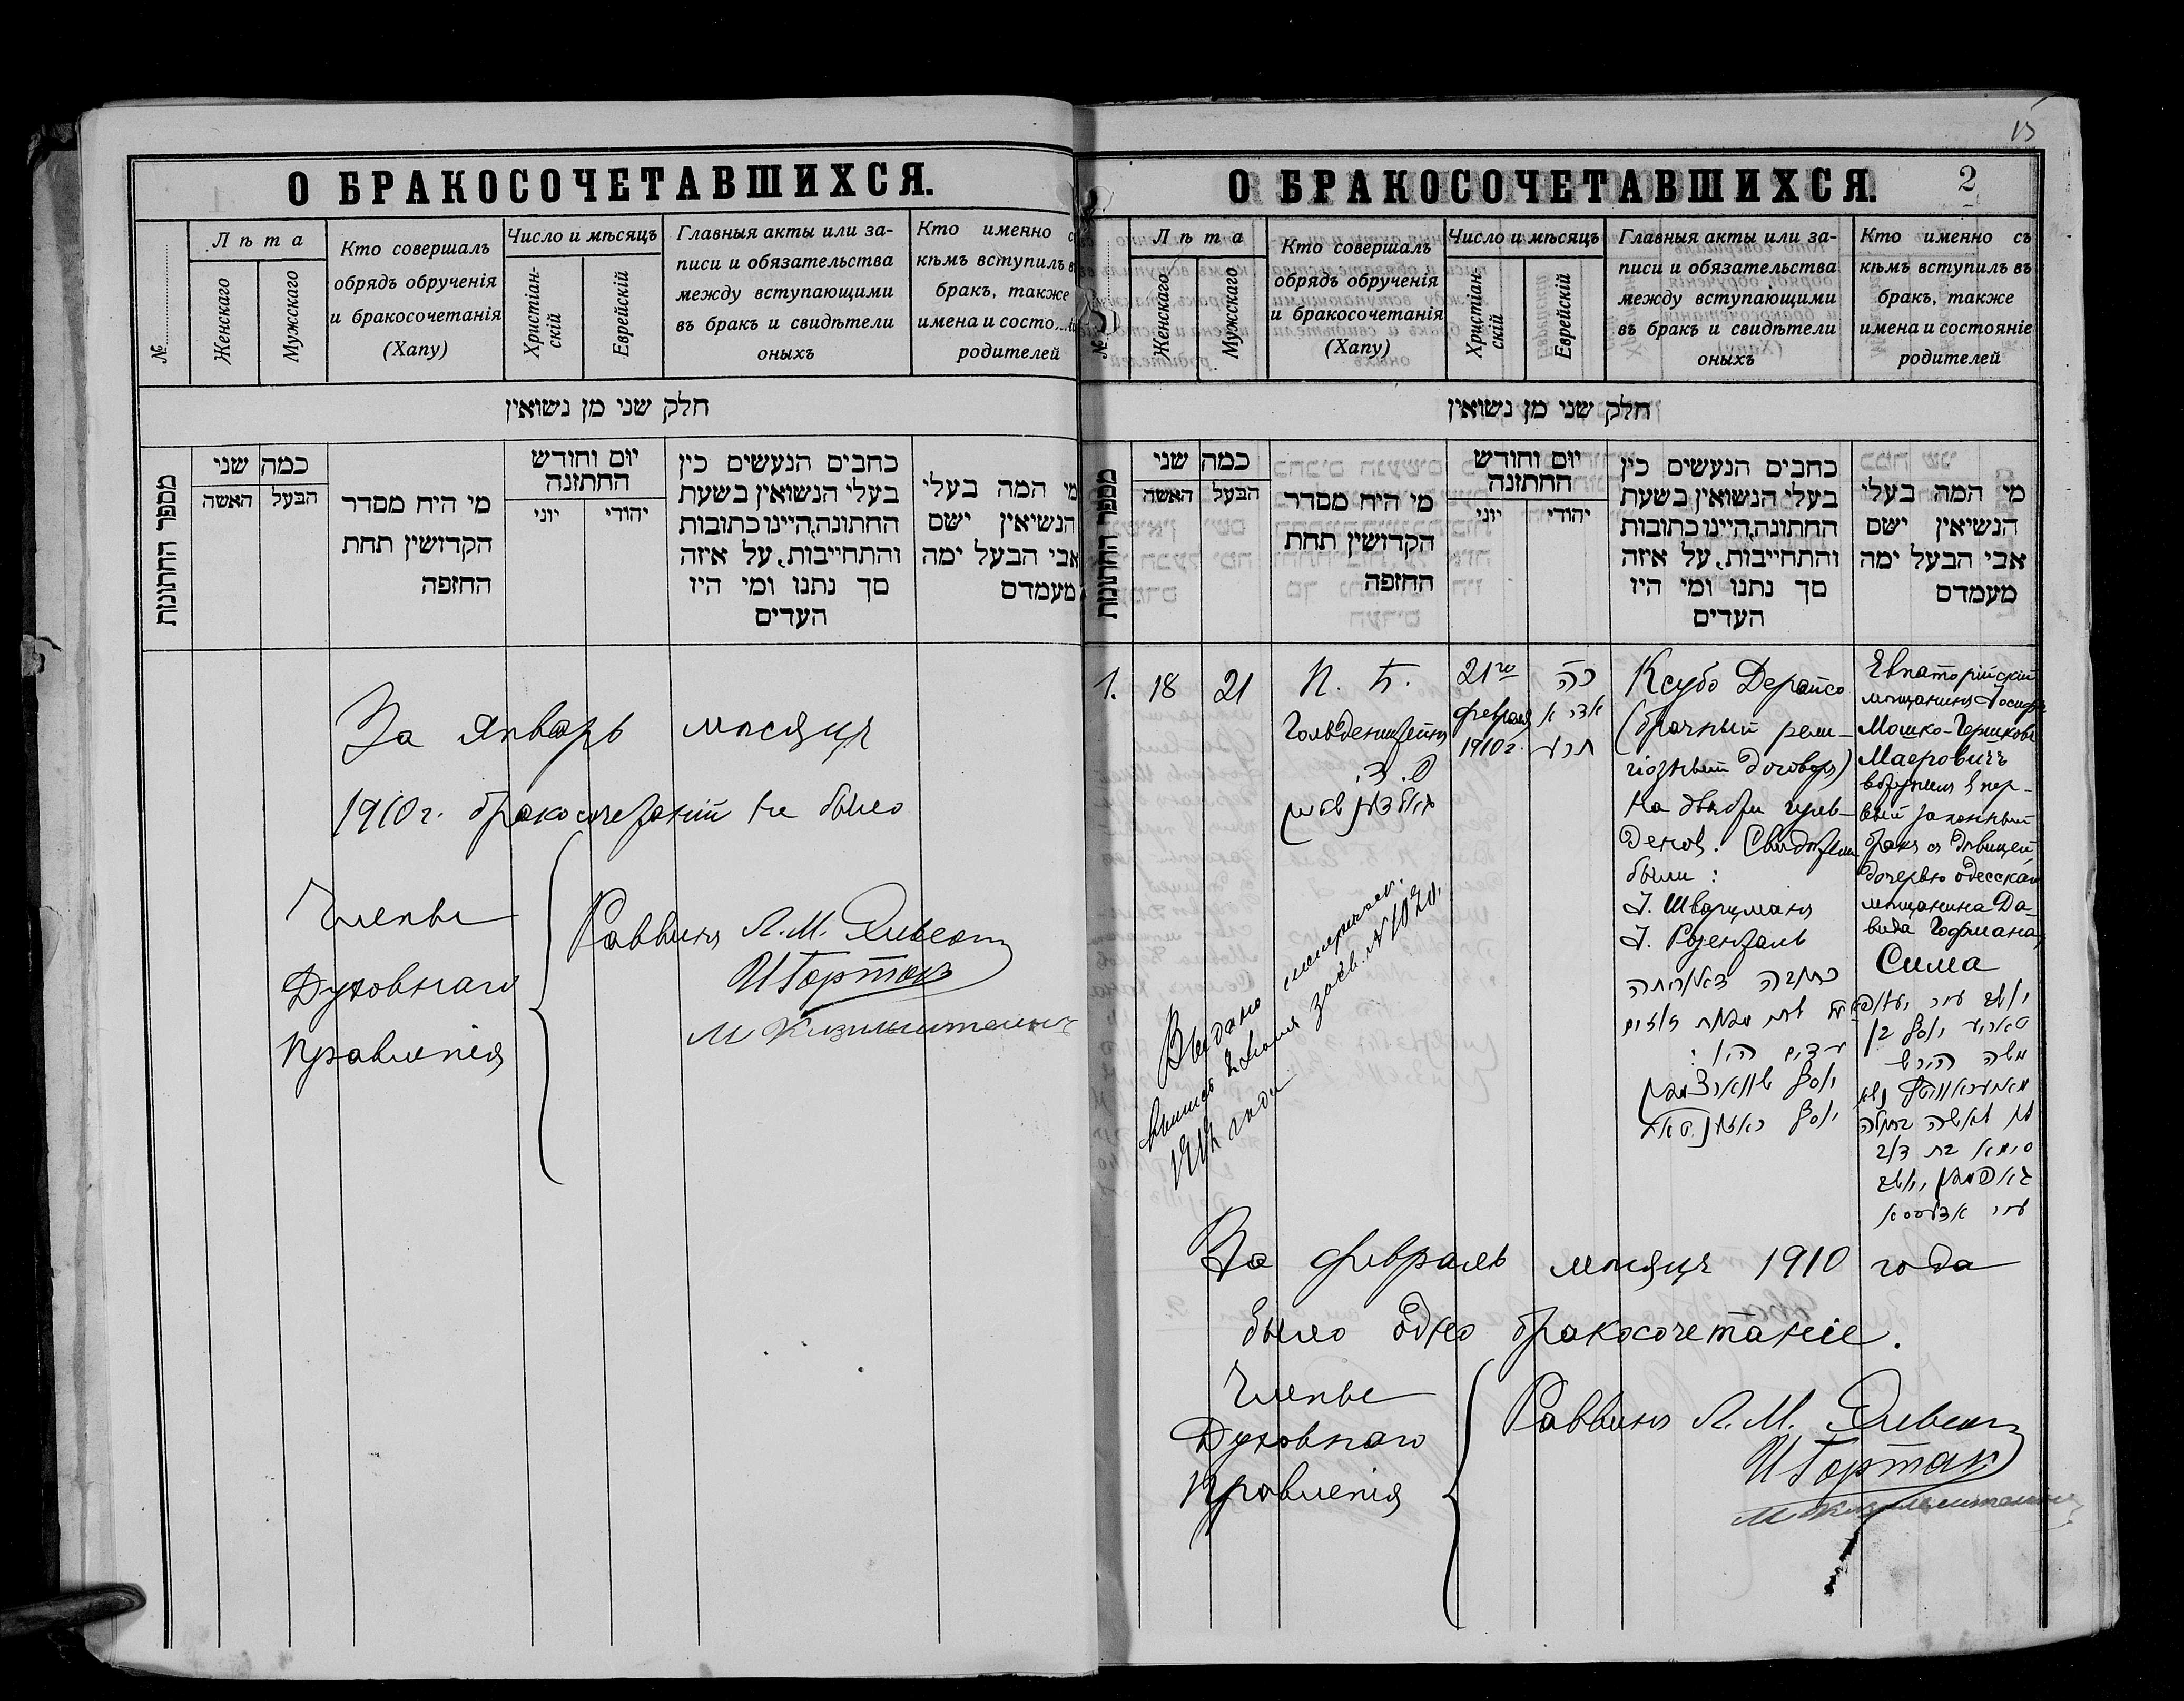 О БРАКОСОЧЕТАВШИХСЯ.
№
Лѣта
Женскаго
Мужскаго
Кто совершалъ
обрядъ обрученія
и бракосочетанія
(Хапу)
Число и мѣсяцъ
Христіан-
скій
Еврейскій
Главныя акты или за-
писи и обязательства
между вступающими
въ бракъ и свидѣтели
оныхъ
Кто именно
кѣмъ вступилъ
бракъ, также
имена и состо
родителей
חלק שני מן נשואין
מספר החתונות
כמה שני
האשה
הבעל
מי היח מסדר
הקדושין תחת
החופה
יום וחודש
החתונה
יוני
יהודי
כחבים הנעשים כין
בעלי הנשואין בשעת
החתונה,היינו כתובות
והתחייבות, על איזה
סך נתנו ומי היו
העדים
מי המה בעלי
הנשיאין ישם
אבי הבעל ימה
מעמדם
За январь мѣсяцъ
1910 г. бракосочетаній не было
Члены
Духовнаго
Правленія
Раввинъ Л. М.
И Гортакъ
М
15
О БРАКОСОЧЕТАВШИХСЯ.
2
№
Лѣта
Женскаго
Мужскаго
Кто совершалъ
обрядъ обрученія
и бракосочетанія
(Хапу)
Число и мѣсяцъ
Христіан-
скій
Еврейскій
Главныя акты или за-
писи и обязательства
между вступающими
въ бракъ и свидѣтели
оныхъ
Кто именно съ
кѣмъ вступилъ въ
бракъ, также
имена и состояніе
родителей
חלק שני מן נשואין
מספר החתונות
כמה שני
האשה
הבעל
מי היח מסדר
הקדושין תחת
החופה
יום וחודש
החתונה
יוני
יהודי
כחבים הנעשים כין
בעלי הנשואין בשעת
החתונה,היינו כתובות
והתחייבות, על איזה
סך נתנו ומי היו
העדים
מי המה בעלי
הנשיאין ישם
אבי הבעל ימה
מעמדם
1.
18
21
П. Б.
Гольденштейнъ
פ. ב.
גאלדענשטיין
21го
февраля
1910 г.
כה
אדר א
תרע
Ксубо Дерайсо
(брачный рели-
гіозный договоръ)
на двѣсти гуль-
деновъ. Свидѣтели
были:
І. Шварцманъ
І. Розенталь
כתובה דאורייתא
מאתים זהובים
עדים היו:
יוסף שווארצמאן
יוסף ראזענטאל
Евпаторійскій
мѣщанинъ Іосифъ
Мошко-Гершковъ
Маеровичъ
вступилъ въ пер-
вый законный
бракъ съ дѣвицей,
дочерью одесскаго
мѣщанина Да-
вида Гофмана,
Сима
יוסף בן
משה הירש
לאשה בתולה
סימא בת דוד
גאפמאן
עיר אדעססא
Выдано метрическ.
1914 года
За февраль мѣсяцъ 1910 года
было одно бракосочетаніе.
Члены
Духовнаго
Правленія
Раввинъ Л. М.
И Гортакъ
М